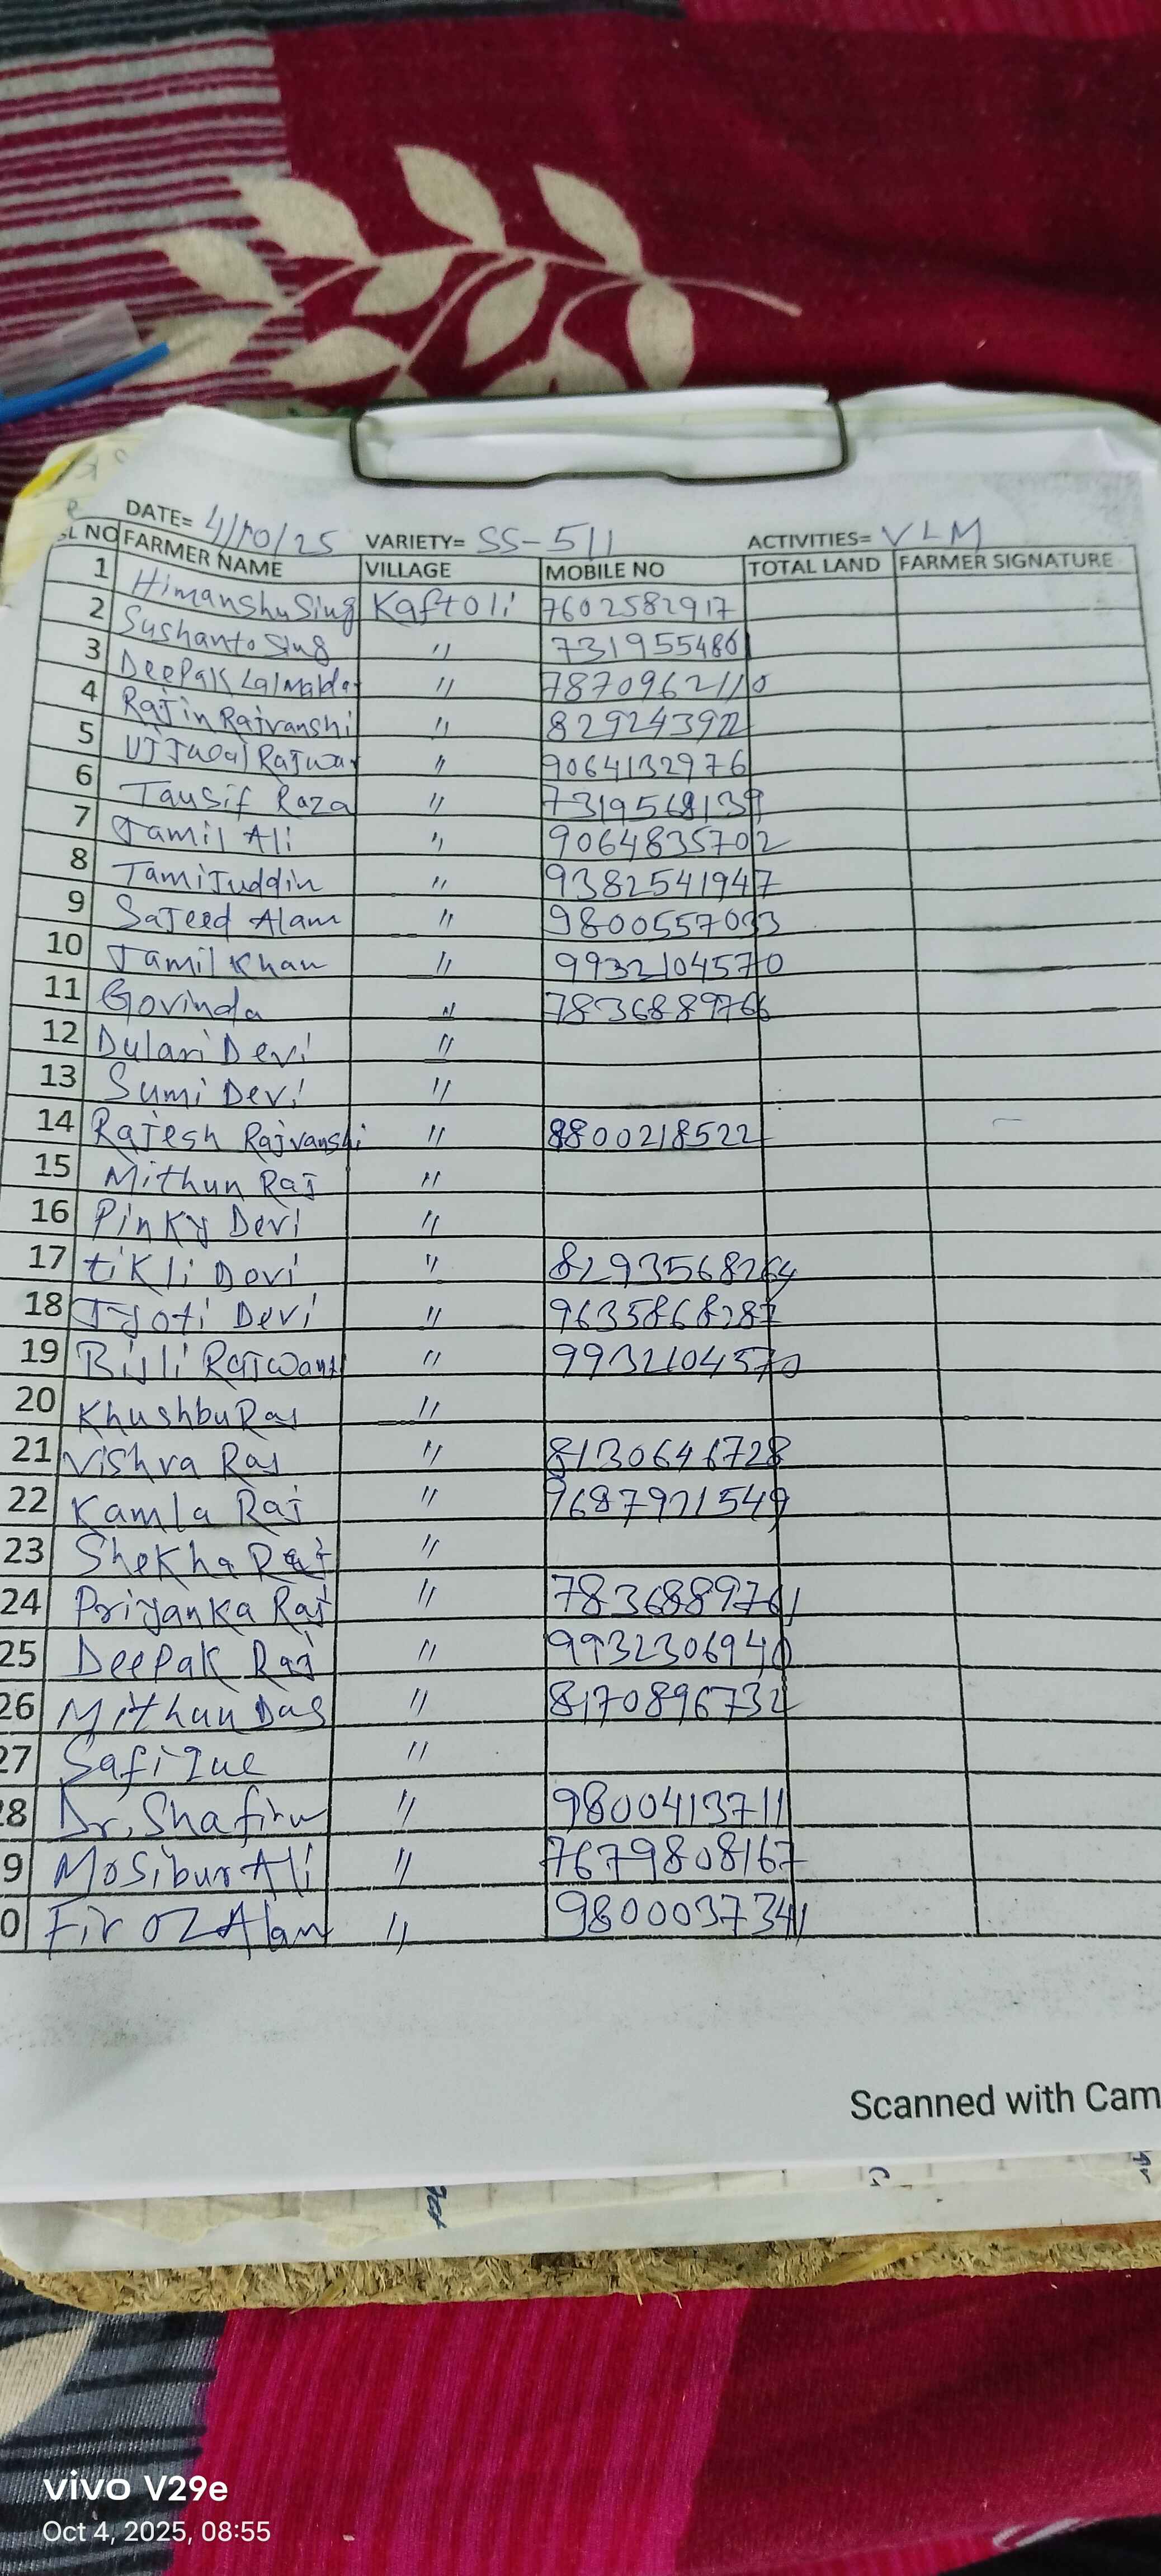 DATE= 4/10/25 VARIETY= SS-511 ACTIVITIES= VLM
SL NO FARMER NAME VILLAGE MOBILE NO TOTAL LAND FARMER SIGNATURE
1 Himanshu Sing Kaftoli 7602582917
2 Sushanto Sing " 7319554861
3 Deepak Lal Malda " 7870962110
4 Rajin Rajvanshi " 829243922
5 Ujjwal Rajwar " 9064132976
6 Tausif Raza " 7319568139
7 Jamil Ali " 9064835702
8 Tamijuddin " 9382541947
9 Sajeed Alam " 9800557093
10 Jamil Khan " 9932104570
11 Govinda " 7836889766
12 Dulari Devi "
13 Sumi Devi "
14 Rajesh Rajvanshi " 8800218522
15 Mithun Raj "
16 Pinky Devi "
17 tikli Devi " 8293568264
18 Jyoti Devi " 9635868287
19 Bijli Rajwans " 9932104570
20 Khushbu Raj "
21 Vishva Raj " 8130646728
22 Kamla Raj " 9687921549
23 Shekha Raj "
24 Priyanka Raj " 7836889761
25 Deepak Raj " 9932306940
26 Mithun Das " 8170896732
27 Safique "
28 Dr, Shafiru " 9800413711
9 Mosibur Ali " 7679808167
0 Firoz Alam " 9800037341
Scanned with Cam
vivo V29e
Oct 4, 2025, 08:55